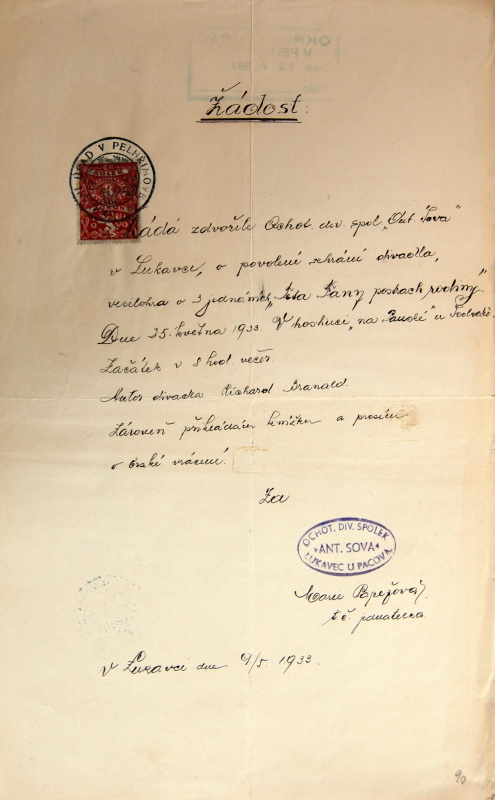 Žádost.
ÚŘAD V PELHŘIMOVĚ
žádá zdvořile Ochot. div. spol. „Ant. Sova"
v Lukavci, o povolení sehrání divadla,
veselohra o 3 jednáních, „Teta Fany postrach rodiny".
Dne 25. května 1933. V hostinci, na u
Začátek v 8 hod. večer.
Autor divadla Richard Branald.
Zároveň přikládám knížku a prosím
o brské vrácení.
Za
OCHOT. DIV. SPOLEK
*ANT. SOVA*
LUKAVEC U PACOVA
Marie
t. č. jednatelka.
V Lukavci dne 9/5 1933.
90